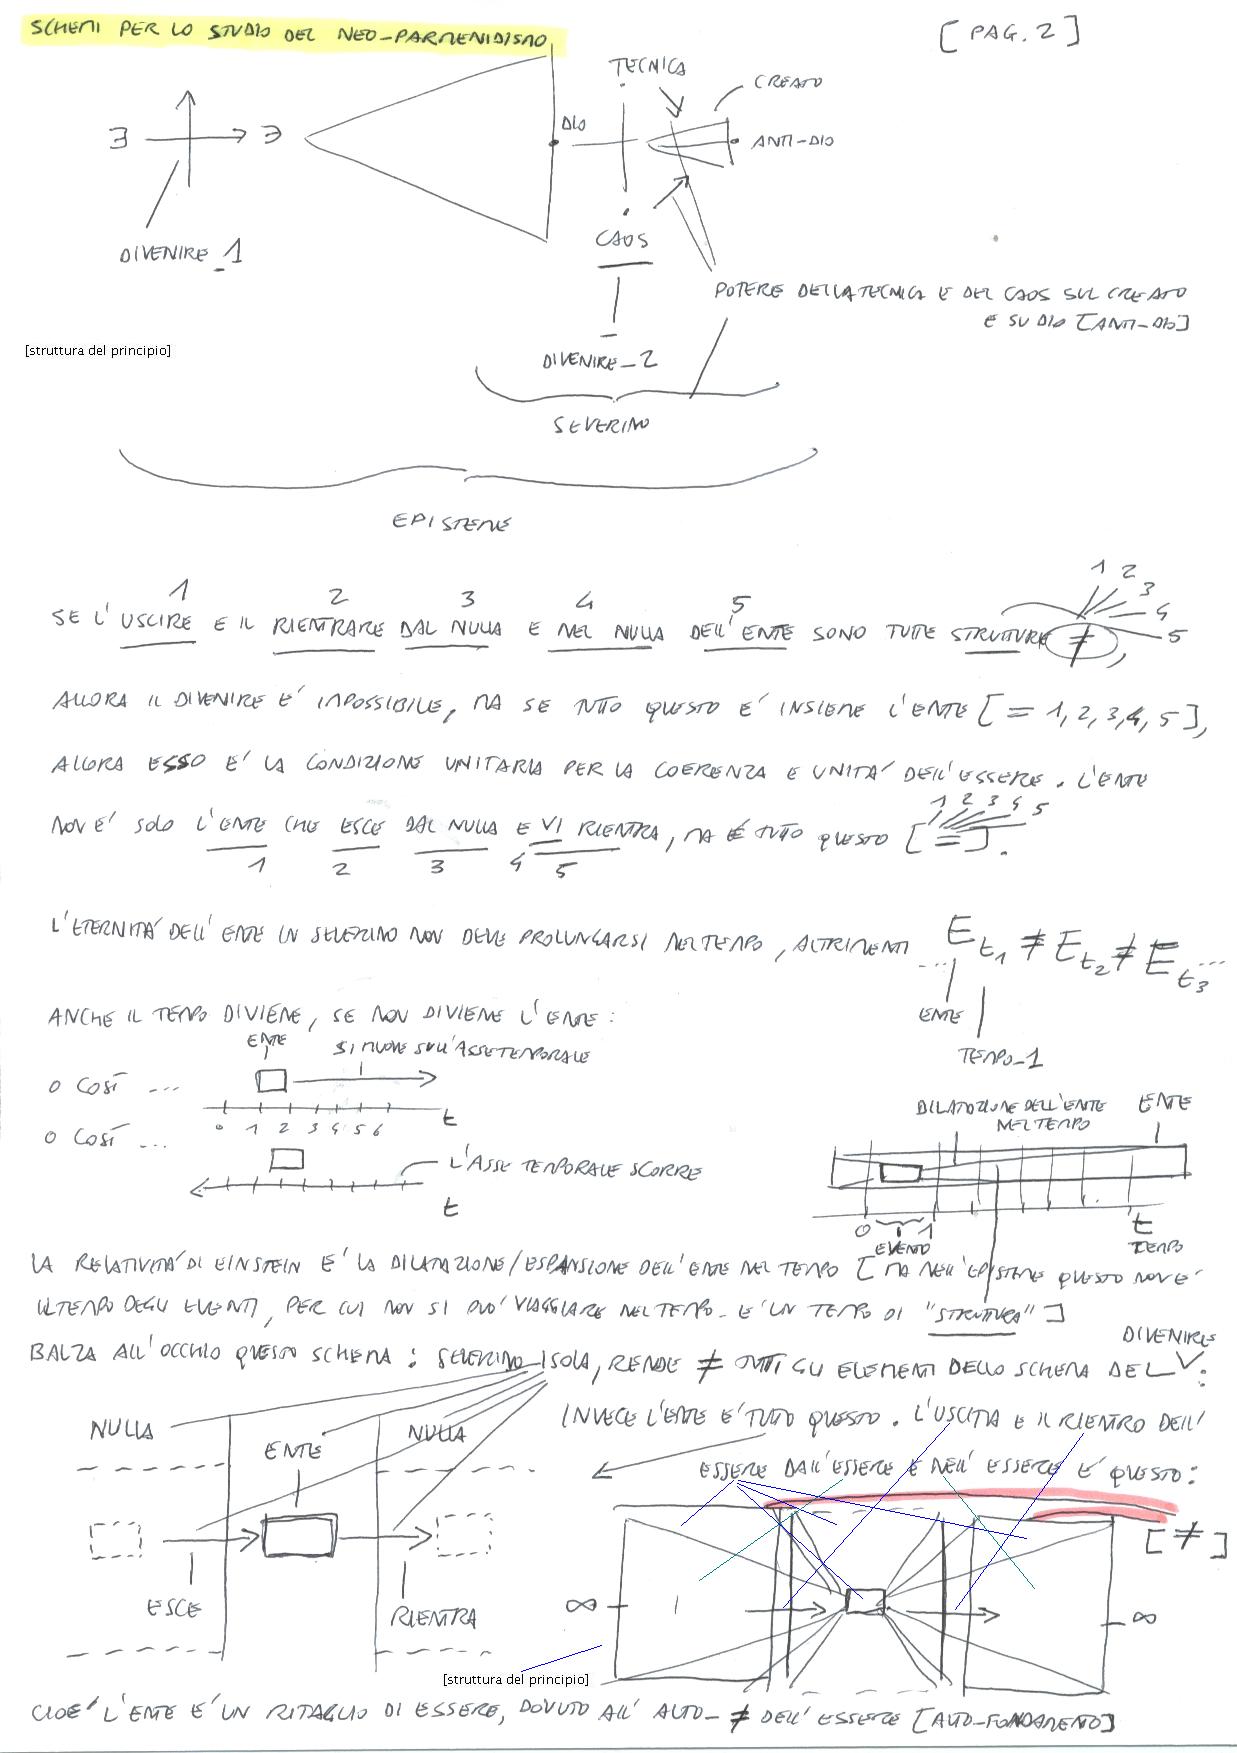 SCHEMI PER LO STUDIO DEL NEO-PARMENIDISMO
[PAG. 2]
TECNICA
CREATO
DIO
ANTI-DIO
∃ ∃
DIVENIRE_1
CAOS
POTERE DELLA TECNICA E DEL CAOS SUL CREATO
E SU DIO [ANTI-DIO]
[struttura del principio]
DIVENIRE_2
SEVERINO
EPISTEME
1 2 3 4 5
1 2 3 4 5
SE L'USCIRE E IL RIENTRARE DAL NULLA E NEL NULLA DELL'ENTE SONO TUTTE STRUTTURE ≠,
ALLORA IL DIVENIRE E' IMPOSSIBILE, MA SE TUTTO QUESTO E' INSIEME L'ENTE [= 1, 2, 3, 4, 5],
ALLORA ESSO E' LA CONDIZIONE UNITARIA PER LA COERENZA E UNITA' DELL'ESSERE. L'ENTE
1 2 3 4 5
NON E' SOLO L'ENTE CHE ESCE DAL NULLA E VI RIENTRA, MA E' TUTTO QUESTO [=].
1 2 3 4 5
L'ETERNITA' DELL'ENTE IN SEVERINO NON DEVE PROLUNGARSI NEL TEMPO, ALTRIMENTI ... E t1 ≠ E t2 ≠ E t3 ...
ENTE
TEMPO_1
ANCHE IL TEMPO DIVIENE, SE NON DIVIENE L'ENTE:
ENTE
SI MUOVE SULL'ASSE TEMPORALE
O COSÌ ...
0 1 2 3 4 5 6 t
O COSÌ ...
L'ASSE TEMPORALE SCORRE
t
DILATAZIONE DELL'ENTE
NEL TEMPO
ENTE
0 1 t
EVENTO
TEMPO
LA RELATIVITA' DI EINSTEIN E' LA DILATAZIONE/ESPANSIONE DELL'ENTE NEL TEMPO [MA NELL'EPISTEME QUESTO NON E'
IL TEMPO DEGLI EVENTI, PER CUI NON SI PUO' VIAGGIARE NEL TEMPO - E' UN TEMPO DI "STRUTTURA"]
DIVENIRE
BALZA ALL'OCCHIO QUESTO SCHEMA: SEVERINO ISOLA, RENDE ≠ TUTTI GLI ELEMENTI DELLO SCHEMA DEL :
INVECE L'ENTE E' TUTTO QUESTO. L'USCITA E IL RIENTRO DELL'
ESSERE DALL'ESSERE E NELL'ESSERE E' QUESTO:
NULLA
ENTE
NULLA
ESCE
RIENTRA
[≠]
∞ ∞
[struttura del principio]
CIOE' L'ENTE E' UN RITAGLIO DI ESSERE, DOVUTO ALL'AUTO-≠ DELL'ESSERE [AUTO-FONDAMENTO]